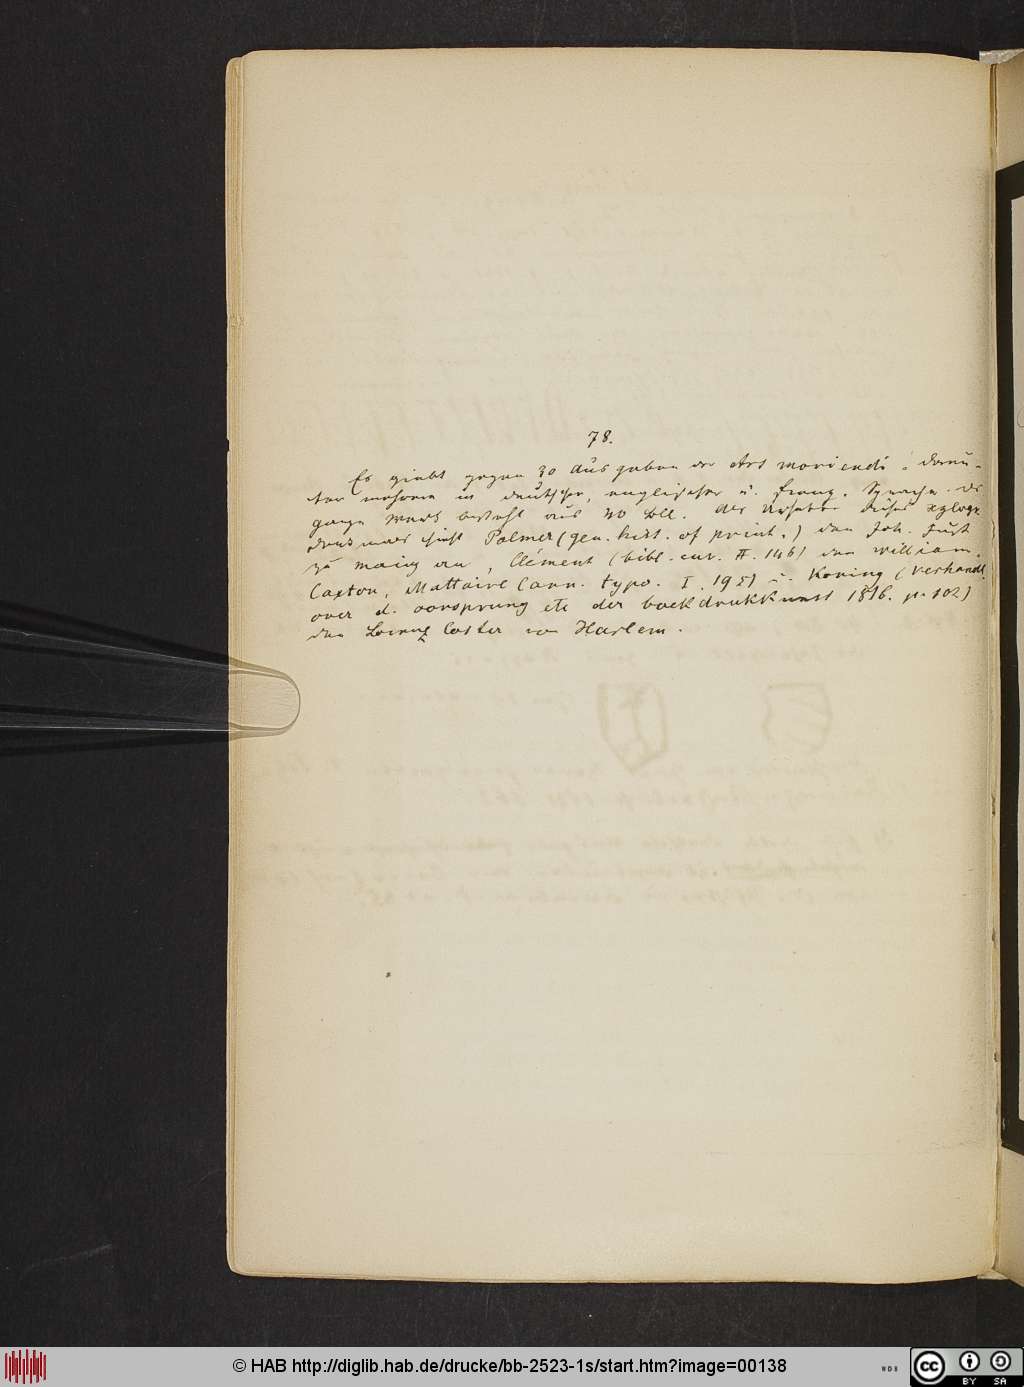 78.
Es giebt gegen 30 Ausgaben der Ars moriendi: darun-
ter mehrere in deutscher, englischer u. franz. Sprache. Das
ganze Werk besteht aus 40 Bll. Als Urheber dieses xylogr.
Denkmals sieht Palmer (gen. hist. of print.) den Joh. Fust
zu Mainz an, Clément (bibl. cur. II. 146) den William
Caxton, Mattaire (ann. typo. I. 195) u. Koning (Verhandl.
over d. oorsprung etc der boekdrukkunst 1816. p. 102)
den Lorenz Coster von Harlem.
© HAB http://diglib.hab.de/drucke/bb-2523-1s/start.htm?image=00138
WDB
cc BY SA